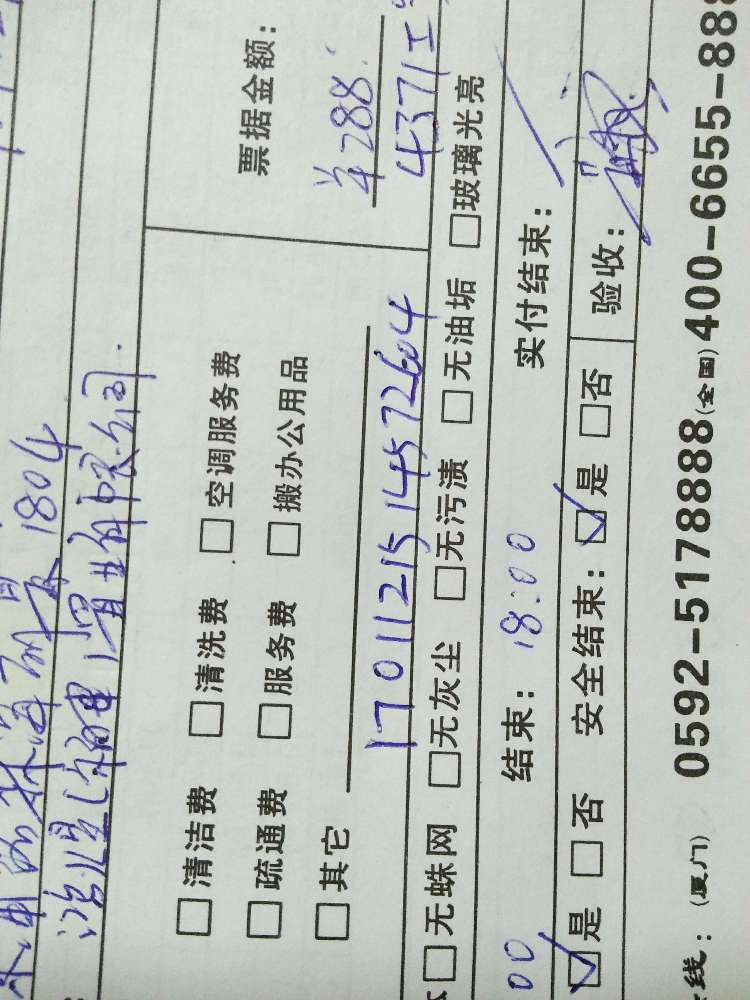 1804
鸿星(福建)置业有限公司
□清洁费 □清洗费 □空调服务费
□疏通费 □服务费 □搬办公用品
□其它
票据金额：
¥288
4371
1701121514572604
□无蛛网 □无灰尘 □无污渍 □无油垢 □玻璃光亮
00 结束：18:00 实付结束：
☑是 □否 安全结束：☑是 □否 验收：
线：(厦门) 0592-5178888(全国)400-6655-888